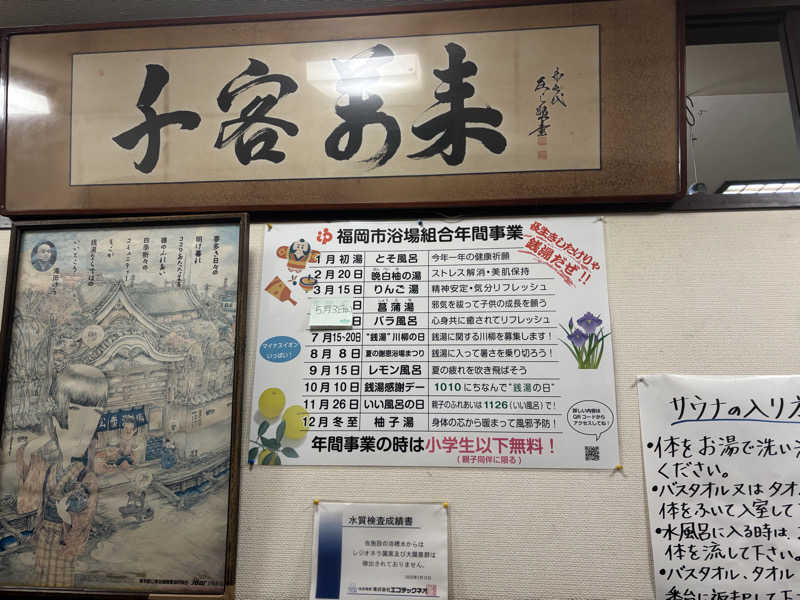 千客万来
喜多き日々の
明け暮れ
ココロあたたまる
穂のふれあい
四季折々の
コミュニティー
銭湯ならではの
福岡市浴場組合年間事業
長生きしたけりゃ
銭湯だぜ!!
1月 初湯 とそ風呂 今年一年の健康祈願
2月20日 晩白柚の湯 ストレス解消・美肌保持
3月15日 りんご湯 精神安定・気分リフレッシュ
5月3日 菖蒲湯 邪気を祓って子供の成長を願う
バラ風呂 心身共に癒されてリフレッシュ
7月15~20日 "銭湯"川柳の日 銭湯に関する川柳を募集します!
8月8日 夏の謝恩浴場まつり 銭湯に入って暑さを乗り切ろう!
9月15日 レモン風呂 夏の疲れを吹き飛ばそう
10月10日 銭湯感謝デー 1010にちなんで"銭湯の日"
11月26日 いい風呂の日 親子のふれあいは1126(いい風呂)で!
12月 冬至 柚子湯 身体の芯から暖まって風邪予防!
年間事業の時は小学生以下無料!
(親子同伴に限る)
マイナスイオン
いっぱい!
詳しい内容は
QRコードから
アクセスしてね!
水質検査成績書
当施設の浴槽水からは
レジオネラ属菌及び大腸菌群は
検出されておりません。
株式会社エコテックネオ
サウナの入り方
・体をお湯で洗い
ください。
・バスタオル又はタオ
体をふいて入室して
・水風呂に入る時は、
体を流して下さい。
・バスタオル、タオル